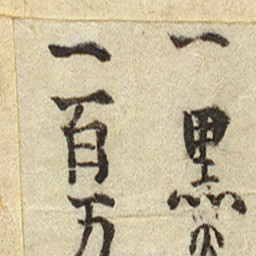 一黒
一百